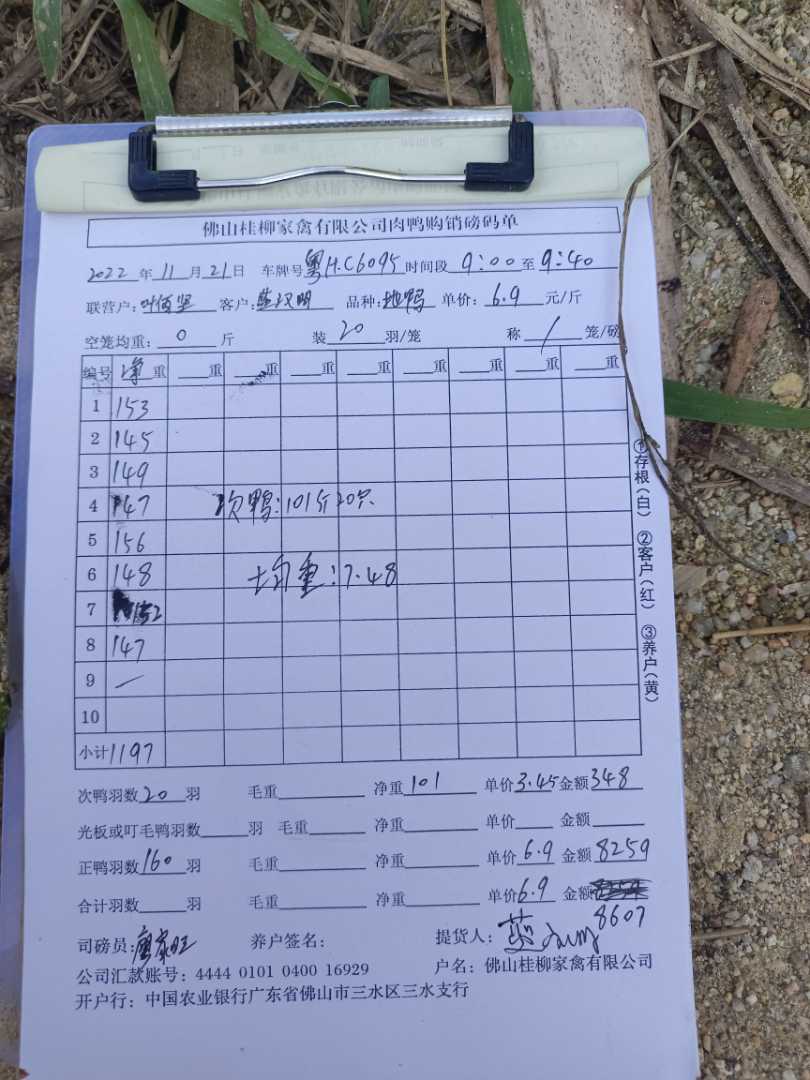 佛山桂柳家禽有限公司肉鸭购销磅码单
2022年11月21日 车牌号粤H.C6095时间段9:00至9:40
联营户: 叶佰坚 客户: 品种:地鸭 单价:6.9元/斤
空笼均重:0斤 装20羽/笼 称1笼/磅
编号 净重 重 重 重 重 重 重 重 重
1 153
2 145
3 149
4 147 次鸭:101斤20只
5 156
6 148 均重:7.48
7 152
8 147
9 —
10
小计1197
①存根(白) ②客户(红) ③养户(黄)
次鸭羽数20羽 毛重 净重101 单价3.45金额348
光板或叮毛鸭羽数 羽 毛重 净重 单价 金额
正鸭羽数160羽 毛重 净重 单价6.9金额8259
合计羽数 羽 毛重 净重 单价6.9金额
8607
司磅员: 养户签名: 提货人:
公司汇款账号: 4444 0101 0400 16929 户名: 佛山桂柳家禽有限公司
开户行: 中国农业银行广东省佛山市三水区三水支行